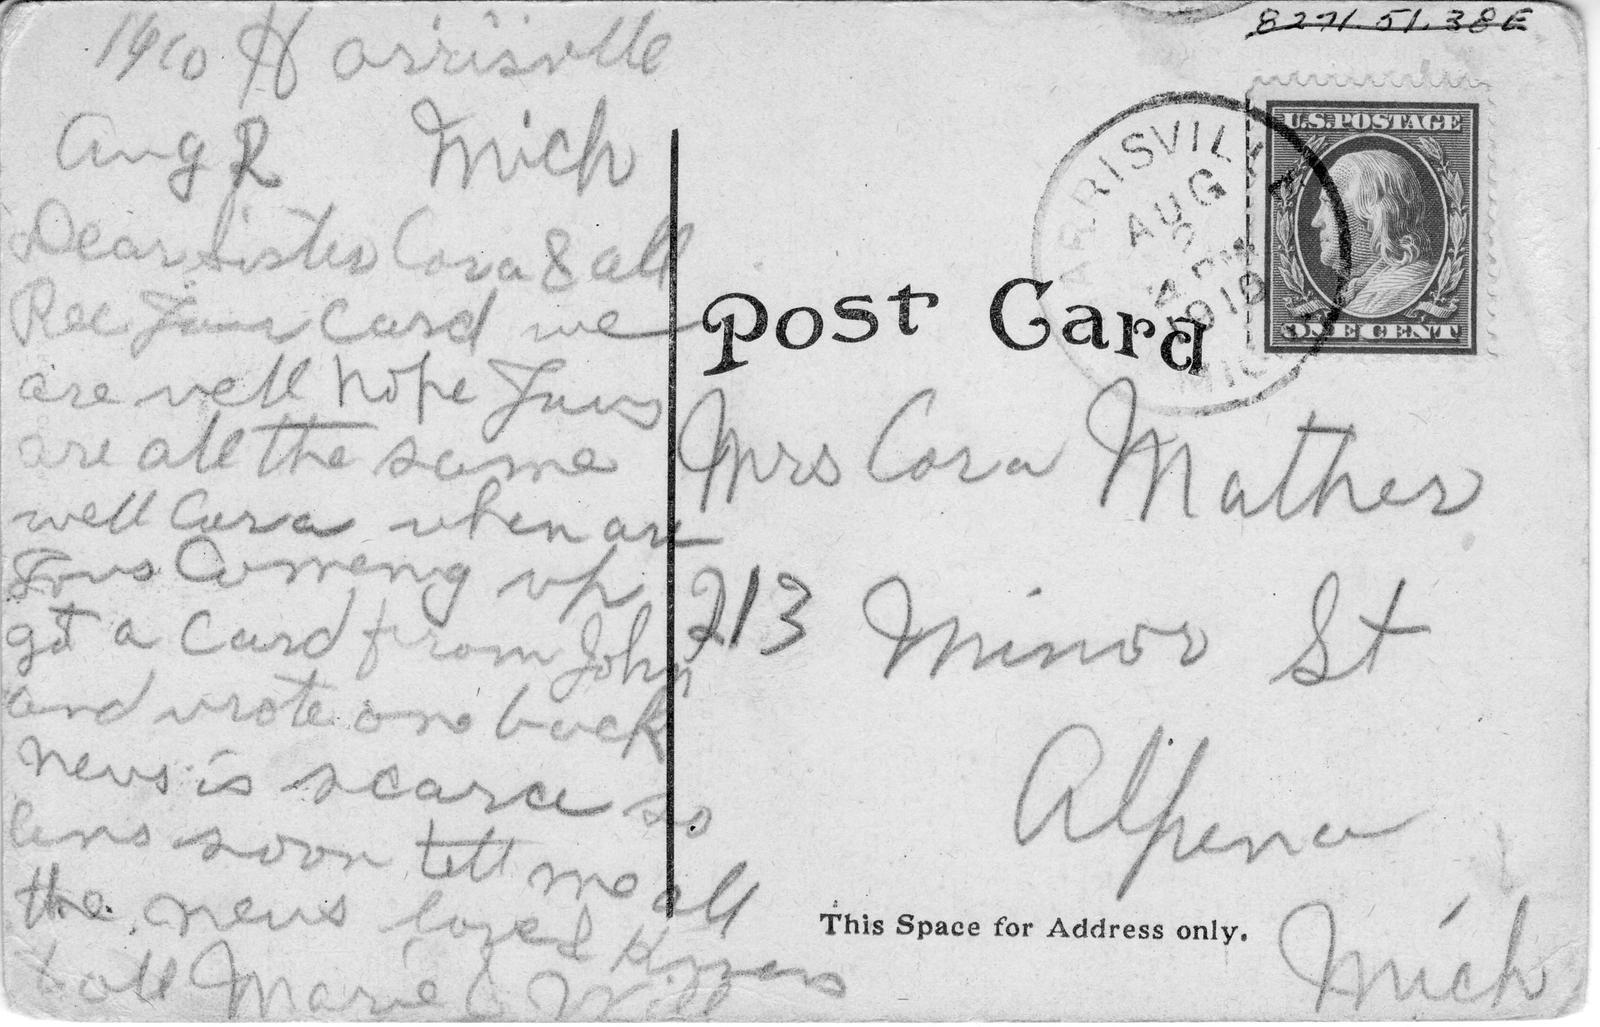 8271.51.38E
1910 Harrisville
Aug 2 Mich
Dear Sister Cora & all
Rec your card we
are well hope yous
are all the same
well Cora when are
yous Comeing up
got a card from John
and wrote one back
news is scarce so
ans soon tell me all
the news love & kisses
to all Marie C W
HARRISVILLE
AUG
2
PM
1910
MICH
U.S. POSTAGE
ONE CENT
Post Card
Mrs Cora Mather
213 Minor St
Alpena
Mich
This Space for Address only.